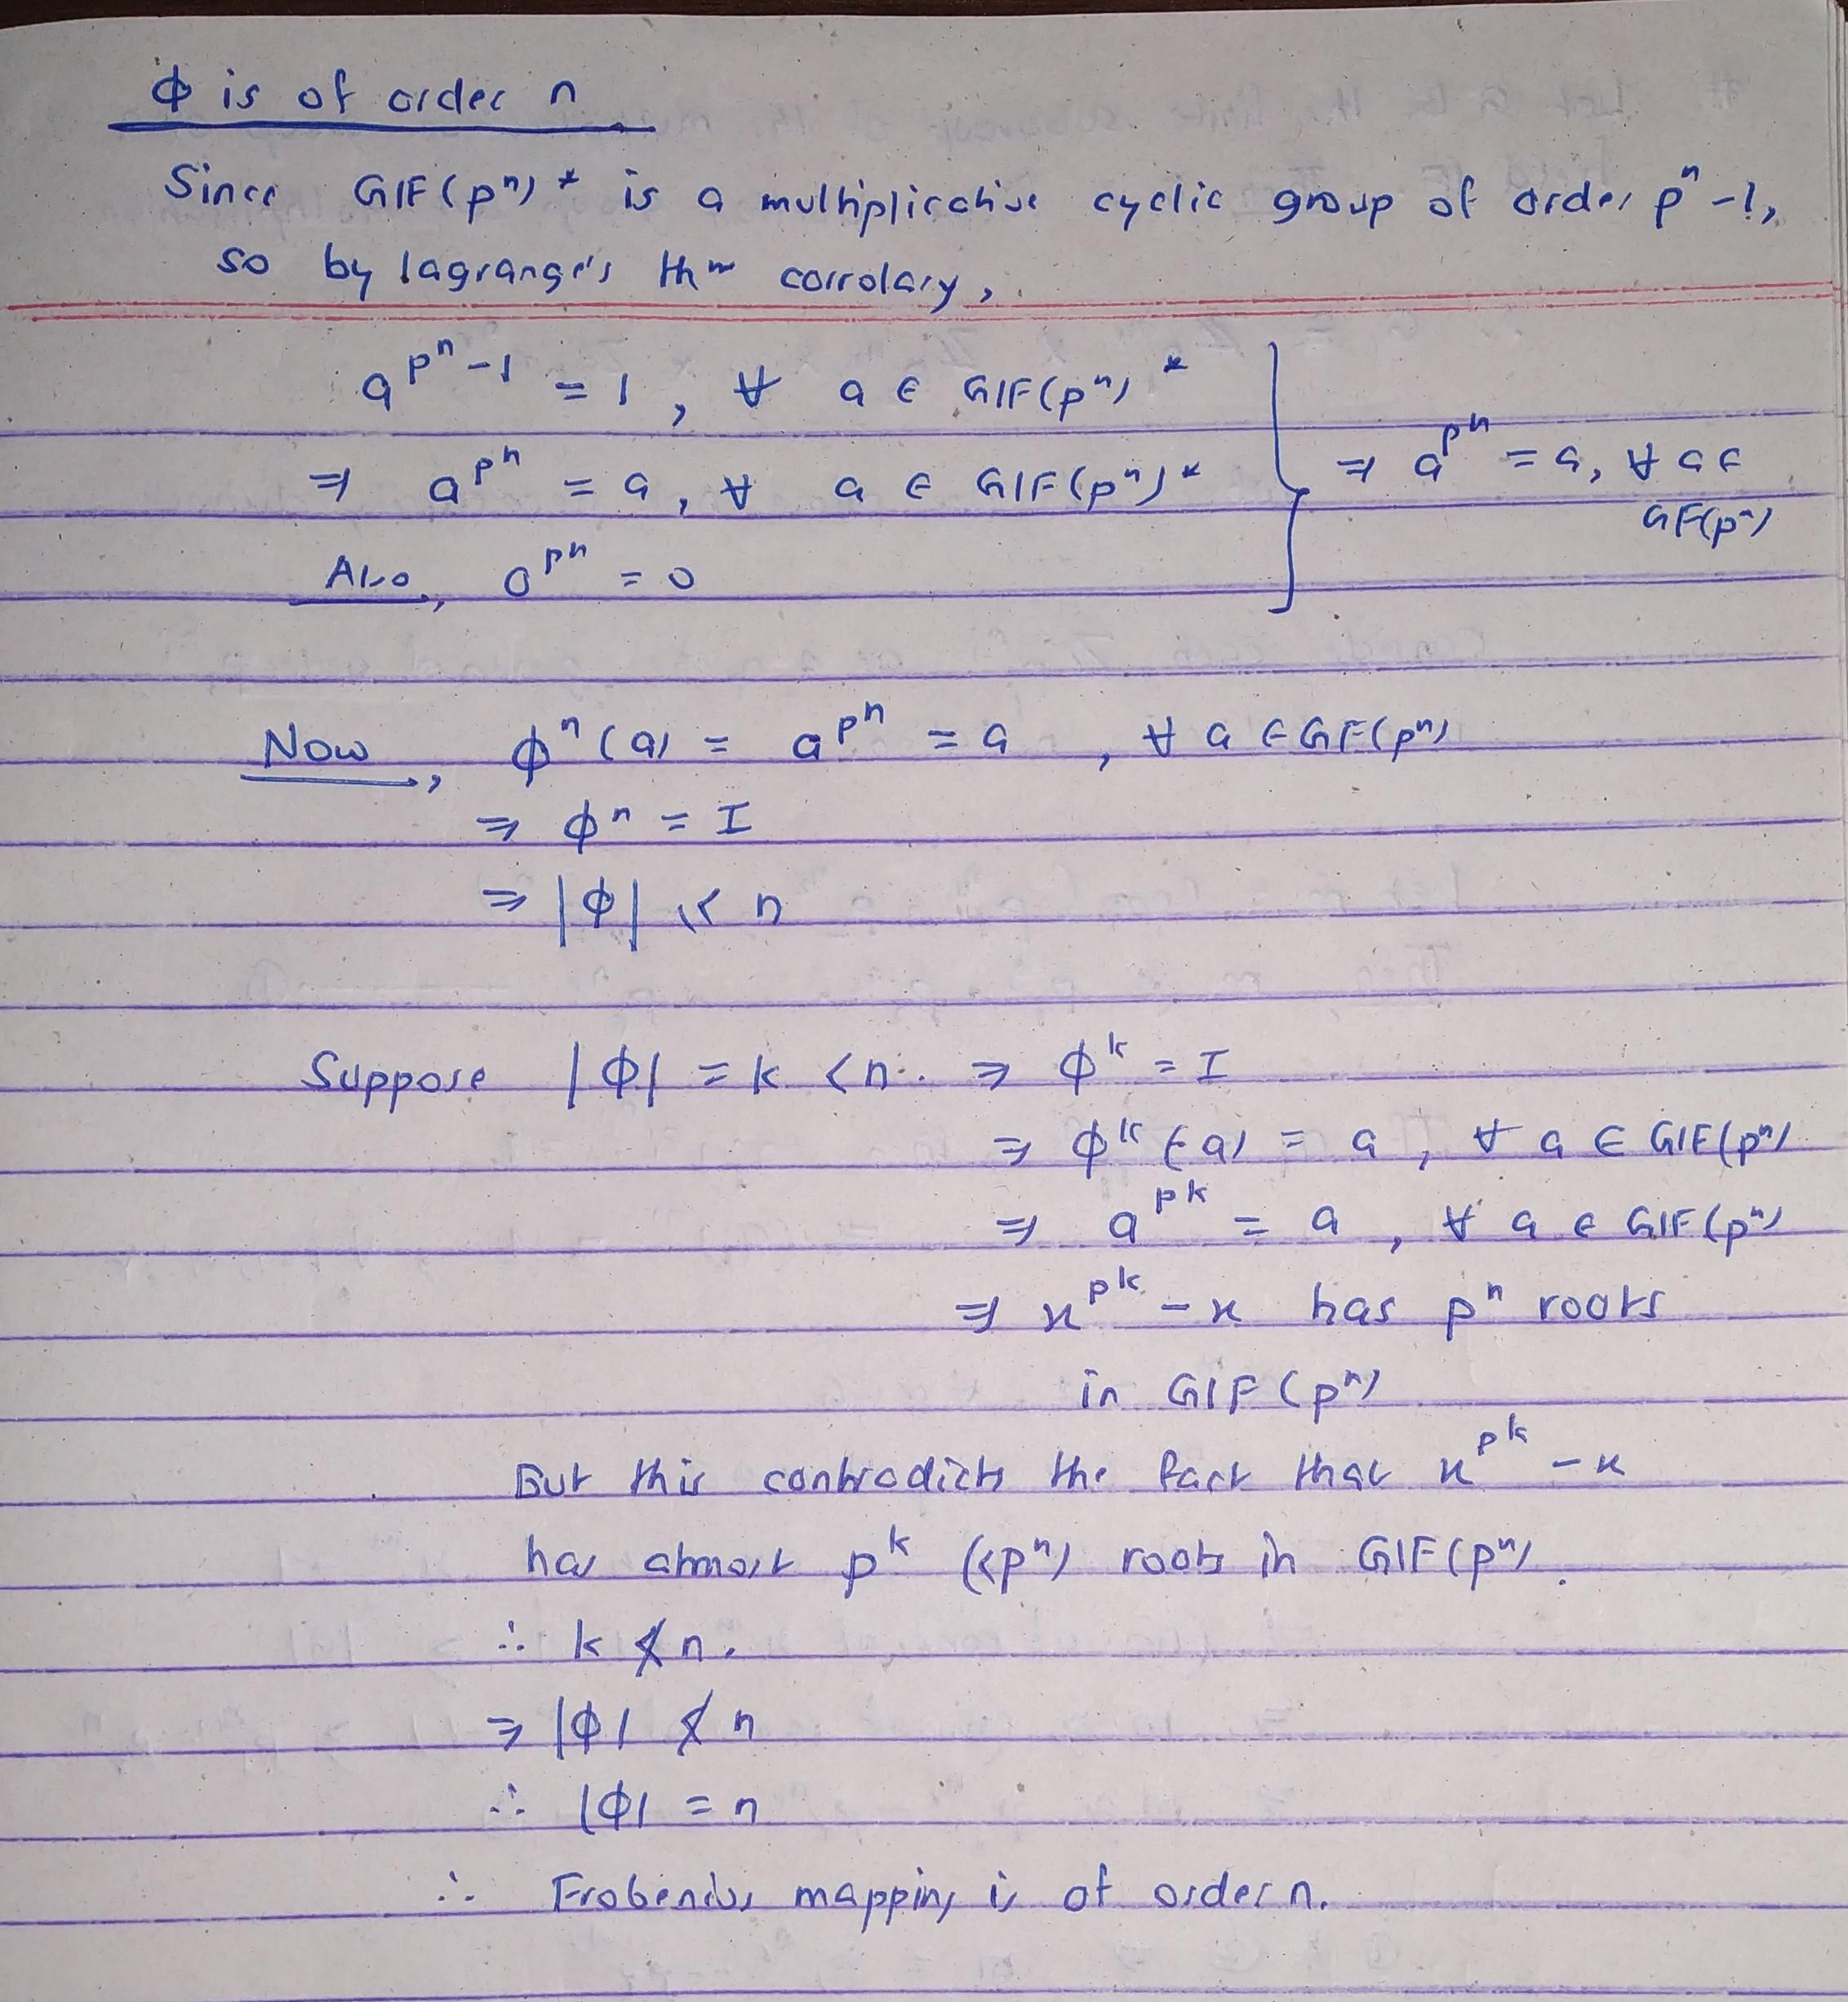 ϕ is of order n
Since GF(pⁿ)* is a multiplicative cyclic group of order pⁿ-1,
so by lagrange's thm corrolary,
a^(pⁿ-1) = 1, ∀ a ∈ GF(pⁿ)*
⇒ a^(pⁿ) = a, ∀ a ∈ GF(pⁿ)* ⇒ a^(pⁿ) = a, ∀ a ∈
GF(pⁿ)
Also, 0^(pⁿ) = 0
Now, ϕⁿ(a) = a^(pⁿ) = a, ∀ a ∈ GF(pⁿ)
⇒ ϕⁿ = I
⇒ |ϕ| ≤ n
Suppose |ϕ| = k < n. ⇒ ϕᵏ = I
⇒ ϕᵏ(a) = a, ∀ a ∈ GF(pⁿ)
⇒ a^(pᵏ) = a, ∀ a ∈ GF(pⁿ)
⇒ x^(pᵏ) - x has pⁿ roots
in GF(pⁿ)
But this contradicts the fact that x^(pᵏ) - x
has atmost pᵏ (<pⁿ) roots in GF(pⁿ).
∴ k ≮ n.
⇒ |ϕ| ≮ n
∴ |ϕ| = n
∴ Frobenius mapping is of order n.